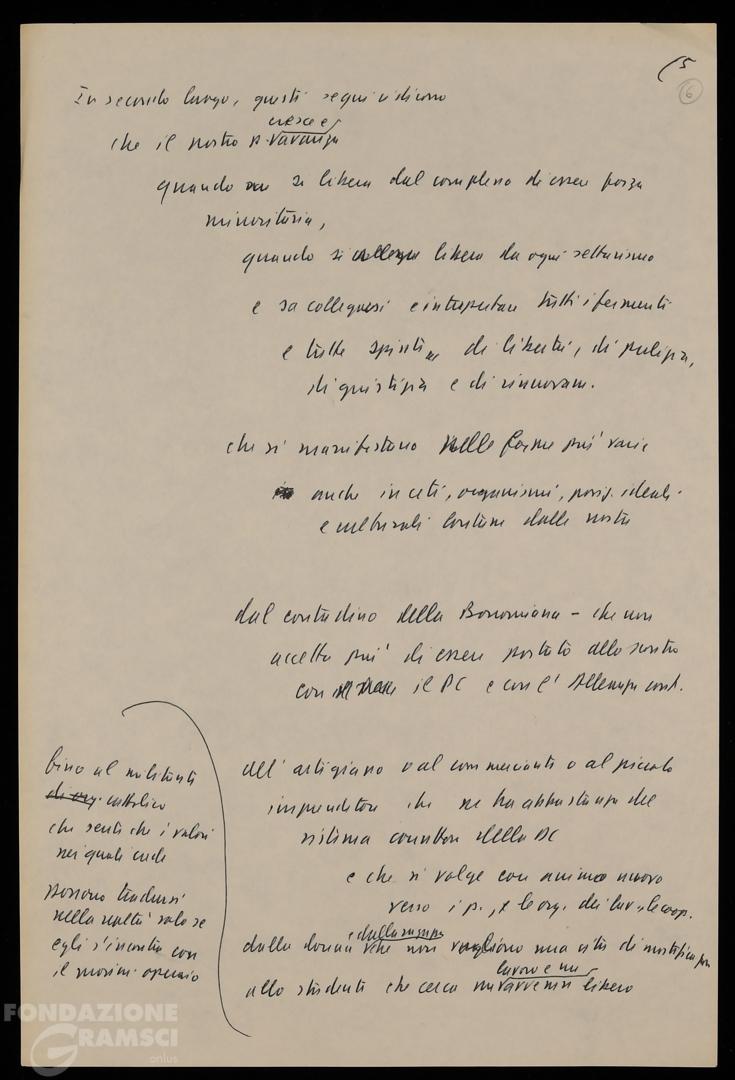 15
6
In secondo luogo, questi segni ci dicono
cresce e
che il nostro p. avanza
quando si libera dal complesso di essere forza
minoritaria,
quando si libera da ogni settarismo
e sa collegarsi e interpretare tutti i fermenti
e tutte spinte di libertà, di pulizia,
di giustizia e di rinnovam.
che si manifestano nelle forme più varie
anche in ceti, organismi, posiz. ideali
e culturali lontane dalle nostre
dal contadino della Bonomiana – che non
accetta più di essere portato allo scontro
con il PC e con l'Alleanza cont.
all'artigiano o al commerciante o al piccolo
imprenditore che ne ha abbastanza del
sistema della DC
e che si volge con animo nuovo
verso i p., e le org. dei lav. e le coop.
e dalla ragazza
dalla donna che non vogliono una vita di
lavoro e un
allo studente che cerca un avvenire libero
fino al militante
di org. cattolico
che sente che i valori
nei quali crede
possono tradursi
nella realtà solo se
egli s'incontra con
il movim. operaio
FONDAZIONE
GRAMSCI
onlus